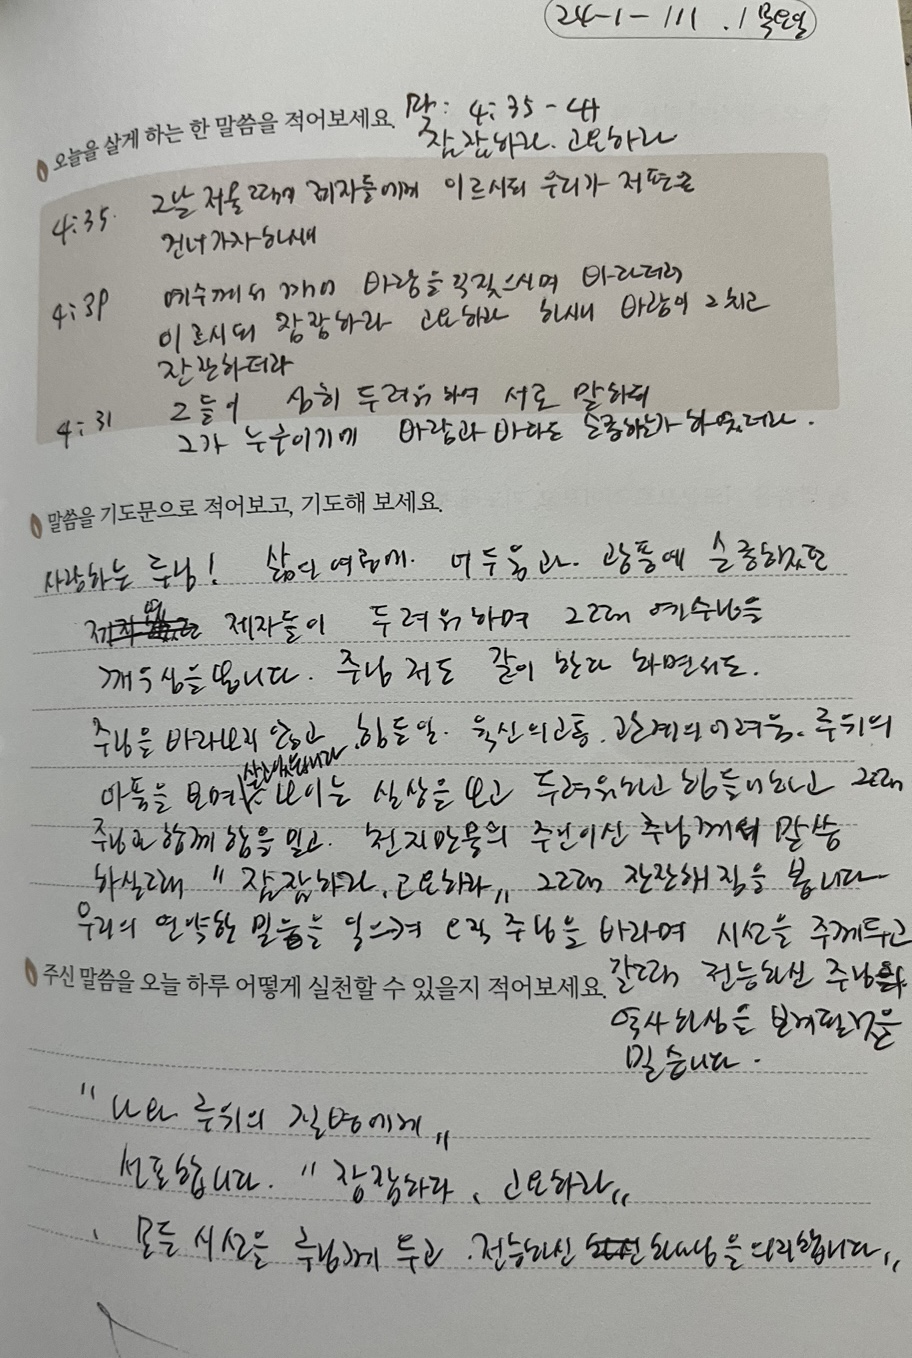 24-1-111 . 1 목요일
오늘을 살게 하는 한 말씀을 적어보세요. 막: 4:35-41
잠잠하라. 고요하라
4:35. 그날 저물 때에 제자들에게 이르시되 우리가 저편으로
건너가자 하시매
4:39 예수께서 깨어 바람을 꾸짖으시며 바다더러
이르시되 잠잠하라 고요하라 하시니 바람이 그치고
잔잔하더라
4:31 그들이 심히 두려워하여 서로 말하되
그가 누구이기에 바람과 바다도 순종하는가 하였더라.
말씀을 기도문으로 적어보고, 기도해 보세요.
사랑하는 주님! 삶의 여정에. 어두움과. 광풍에 순종했던
제자들이 두려워하며 그때 예수님을
깨우심을 봅니다. 주님 저도 같이 한다 하면서도.
주님을 바라보지 않고 힘든일. 육신의 고통. 관계의 어려움. 주위의
아픔을 보며 살고있습니다 보이는 실상을 보고 두려워하고 힘들어하고 그때
주님은 함께 함을 믿고. 천지만물의 주인이신 주님께서 말씀
하실 때 "잠잠하라, 고요하라" 그때 잔잔해짐을 봅니다.
우리의 연약한 믿음을 일으켜 오직 주님을 바라며 시선을 주께 두고
주신 말씀을 오늘 하루 어떻게 실천할 수 있을지 적어보세요. 갈때 전능하신 주님의
역사하심을 보게될것을
믿습니다.
"나와 주위의 질병에게"
선포합니다. "잠잠하라, 고요하라"
모든 시선을 주님께 두고. 전능하신 하나님을 의지합니다"